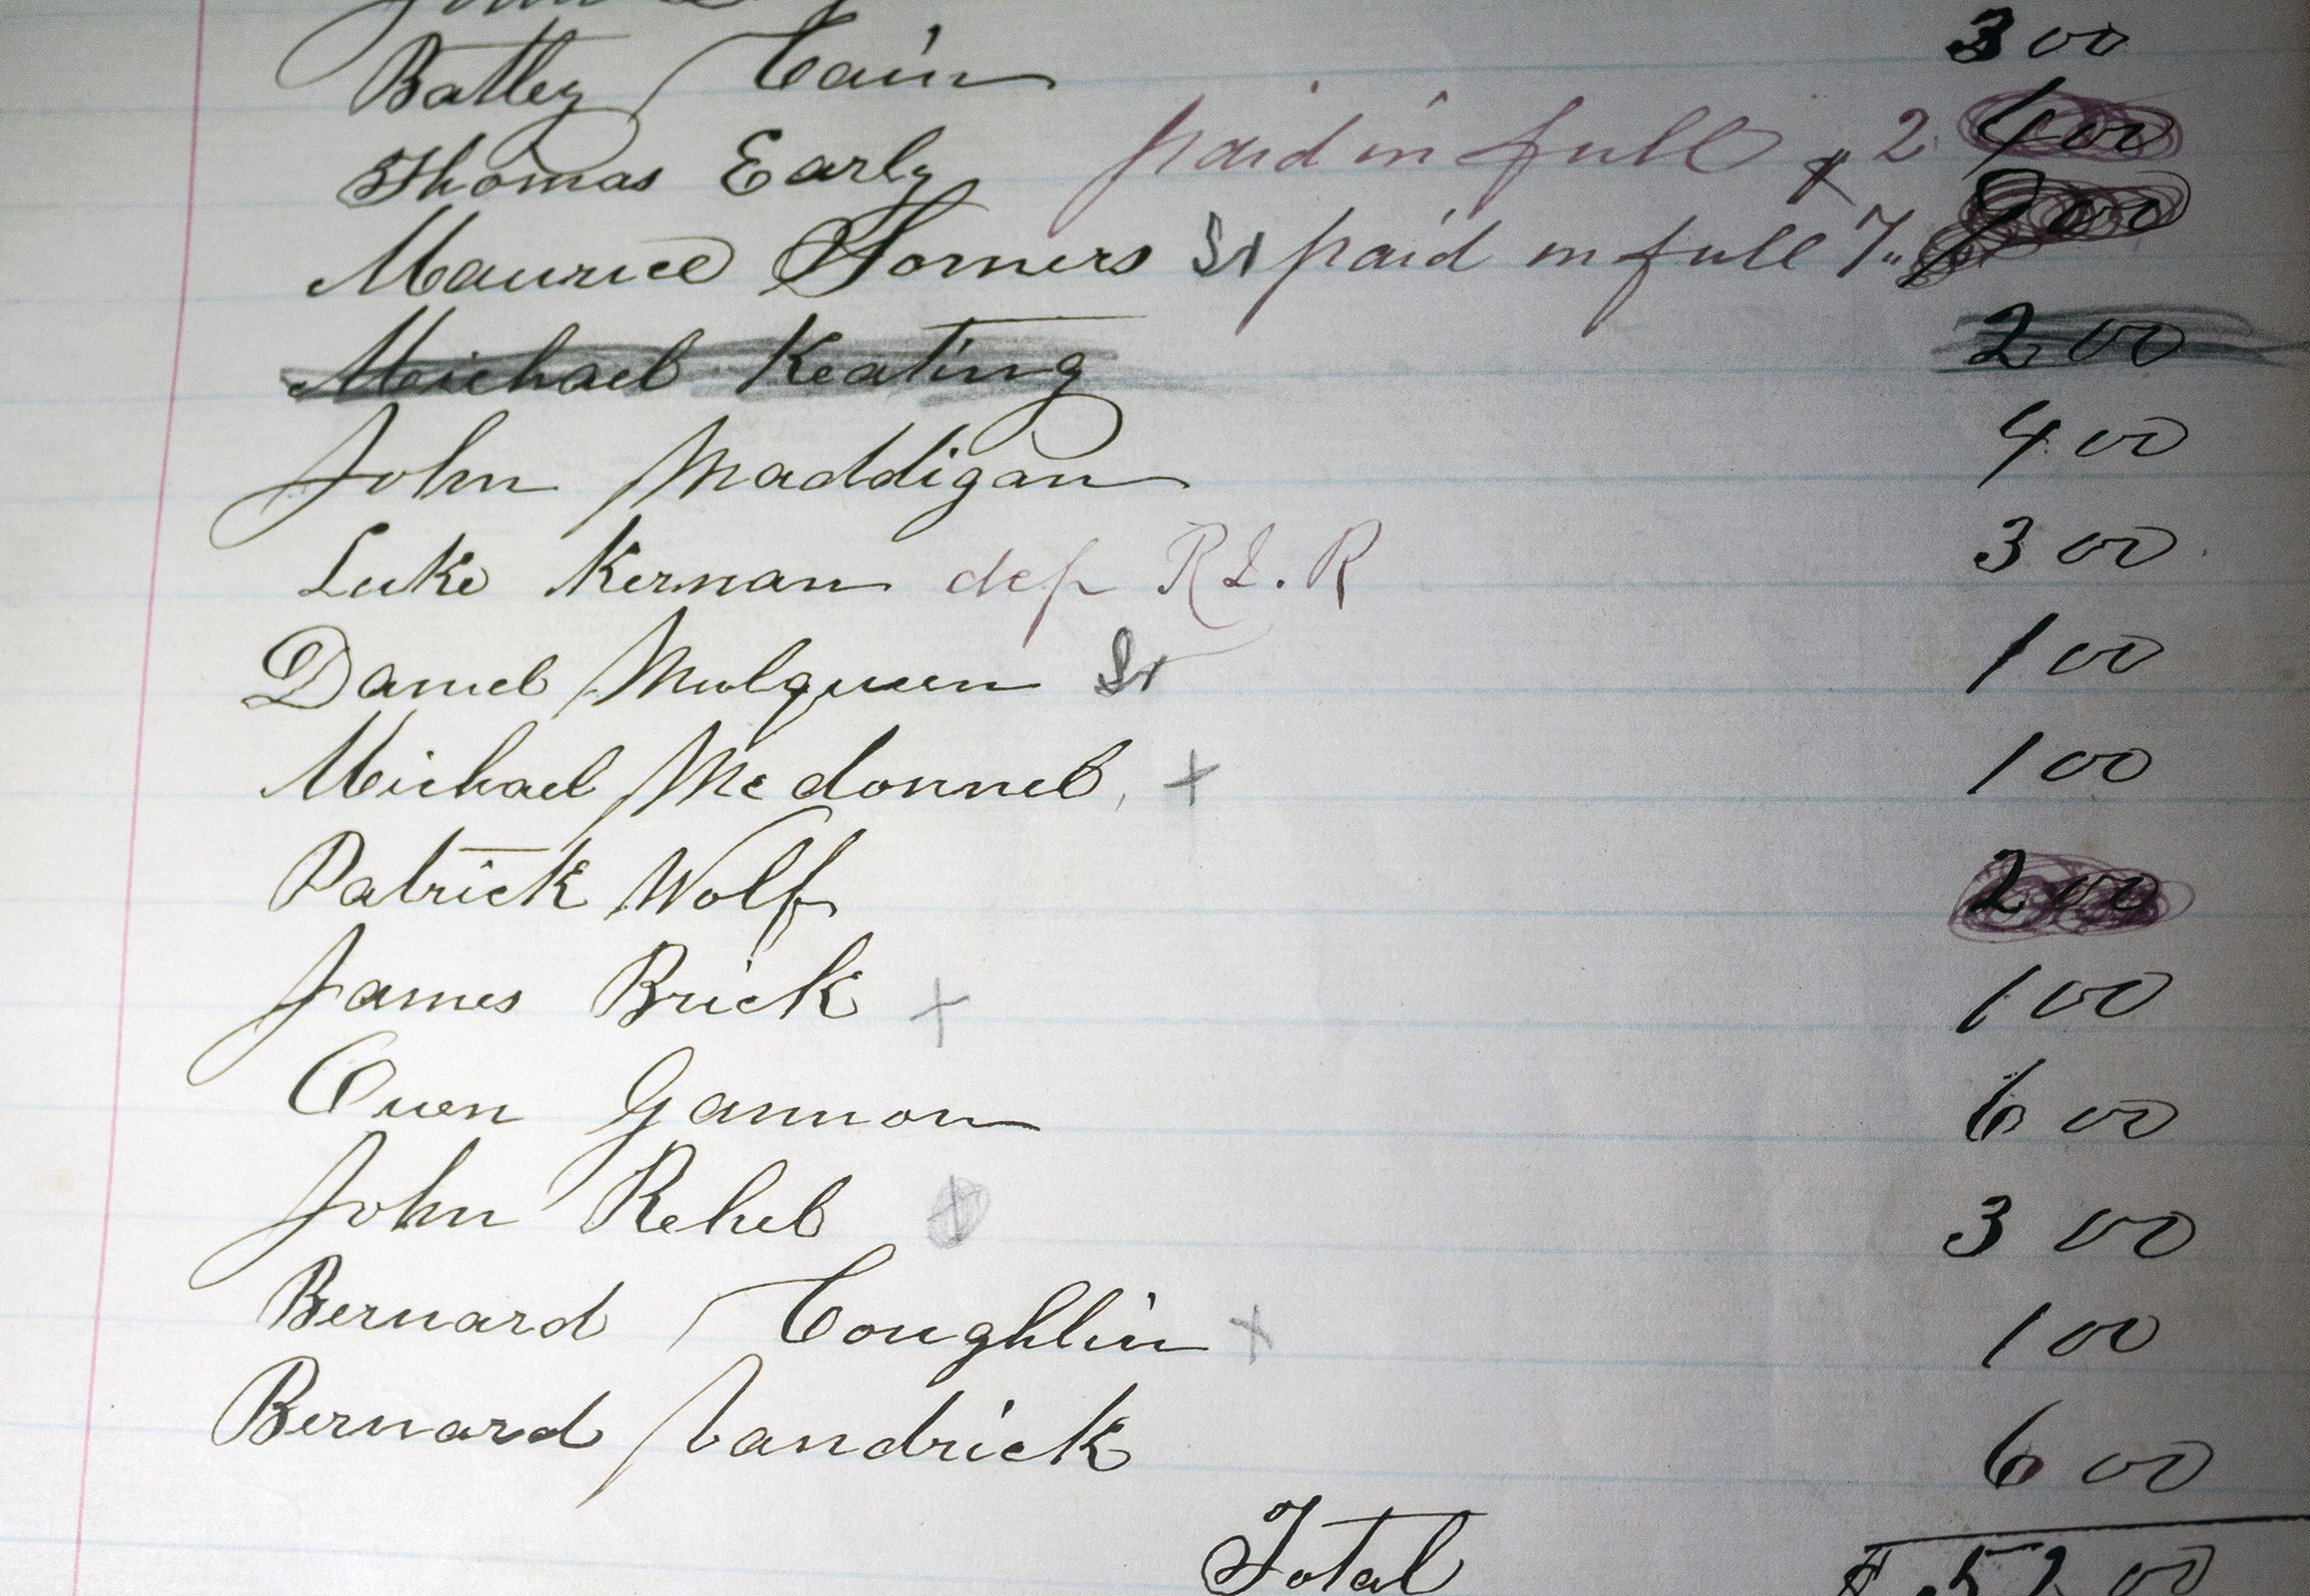 Batley Cain 3 00
Thomas Early paid in full $2 4 00
Maurice Horners Sr paid in full 7" 9 00
Michael Keating 2 00
John Maddigan 4 00
Luke Kernan dep R L. R 3 00
Daniel Mulqueen Sr 1 00
Michael Mcdonnel, + 1 00
Patrick Wolf 2 00
James Brick + 1 00
Owen Gannon 6 00
John Rehel + 3 00
Bernard Coughlin + 1 00
Bernard Vandrick 6 00
Total $ 52 00